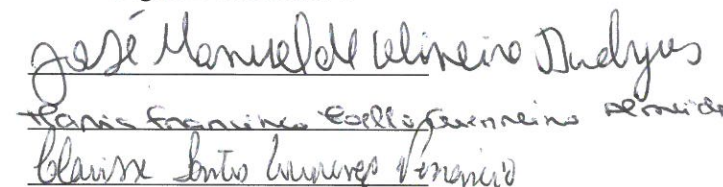 José Manuel de Oliveira
Maria Francisca Coelho Guerreiro Almeida
Clarisse Santos Lourenço Venâncio